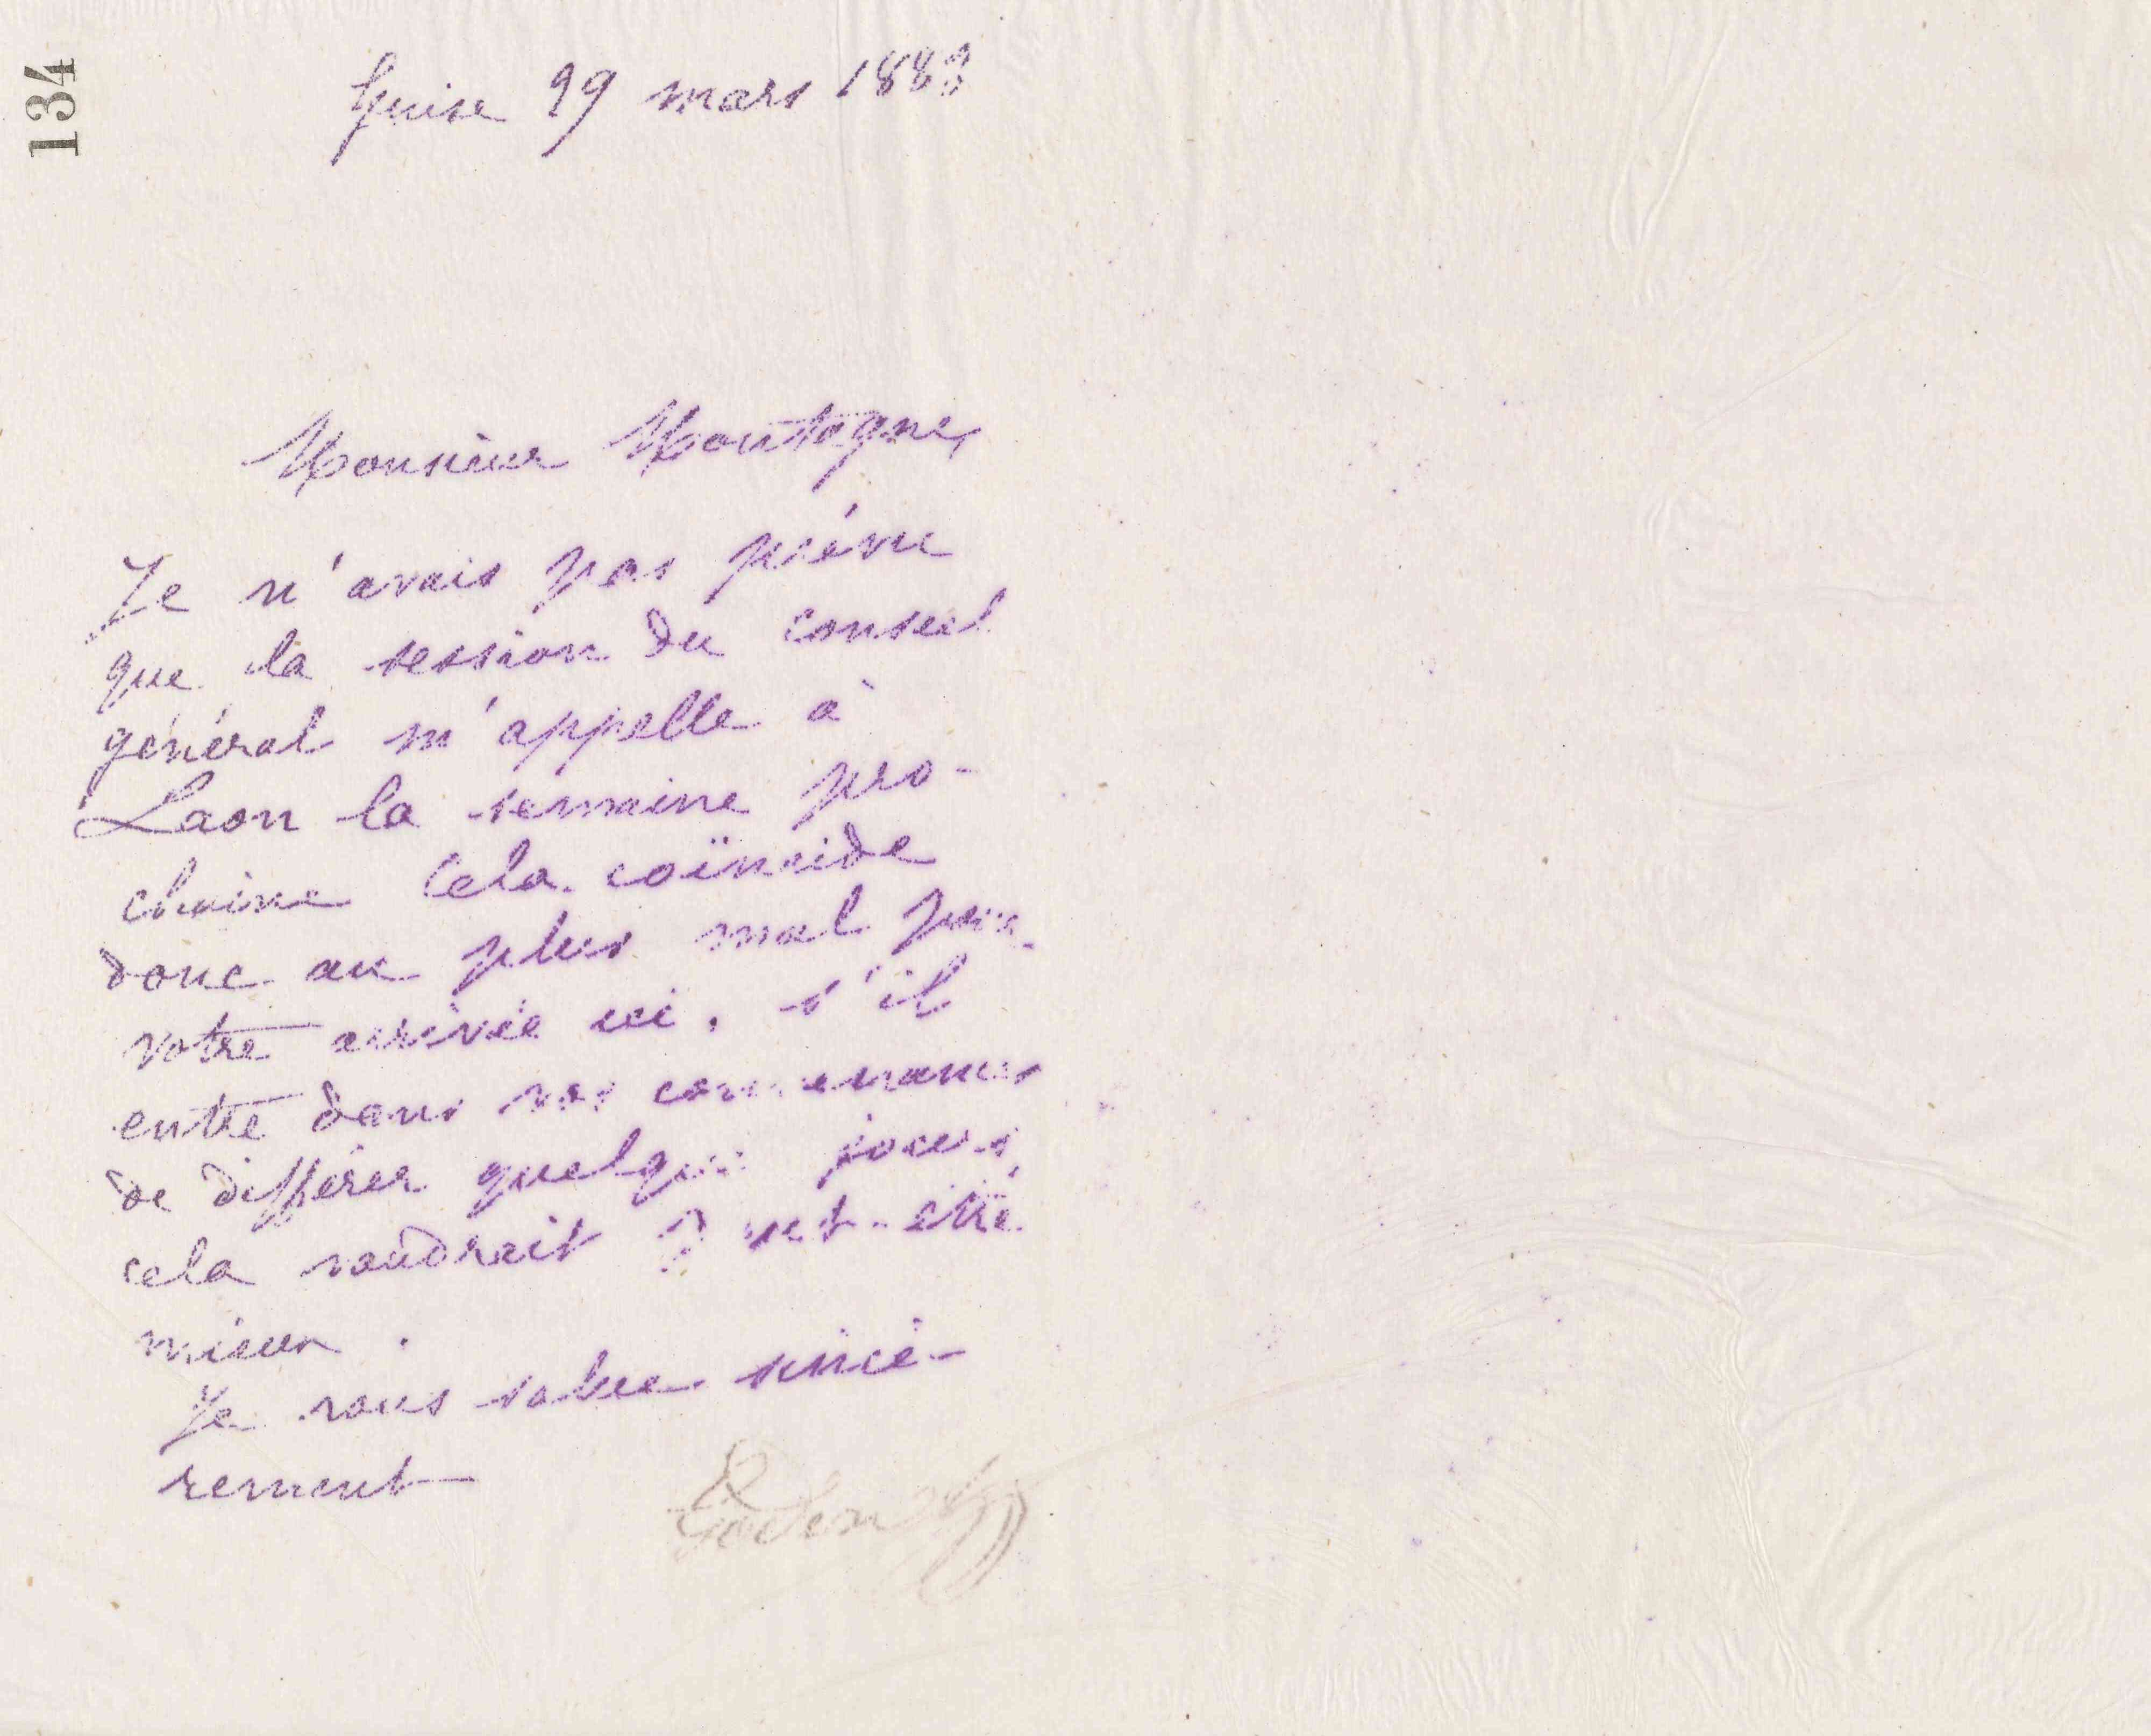 134
Guise 29 mars 1883
Monsieur Montagne,
Je n'avais pas prévu
que la session du conseil
général m'appelle à
Laon la semaine pro-
chaine Cela coïncide
donc au plus mal pour
votre arrivée ici. s'il
entre dans vos convenances
de différer quelques jours,
cela vaudrait peut-être
mieux.
Je vous salue sincè-
rement
Godin